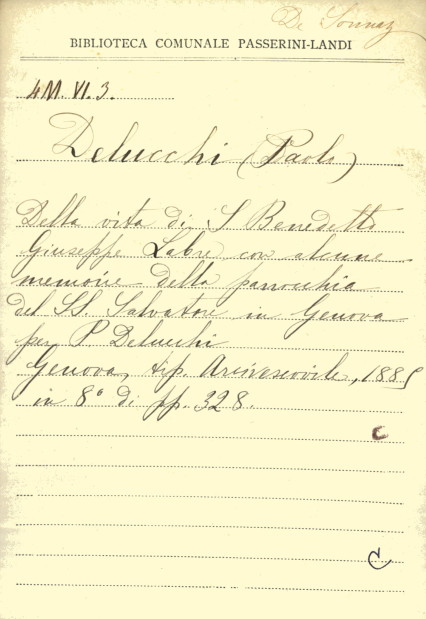 De Sonnaz
BIBLIOTECA COMUNALE PASSERINI-LANDI
4M.VI.3.
Delucchi (Paolo)
Della vita di S Benedetto
Giuseppe Labre con alcune
memorie della parrocchia
del SS. Salvatore in Genova
per P. Delucchi
Genova, tip. Arcivescovile, 1885
in 8° di pp. 328.
C
C